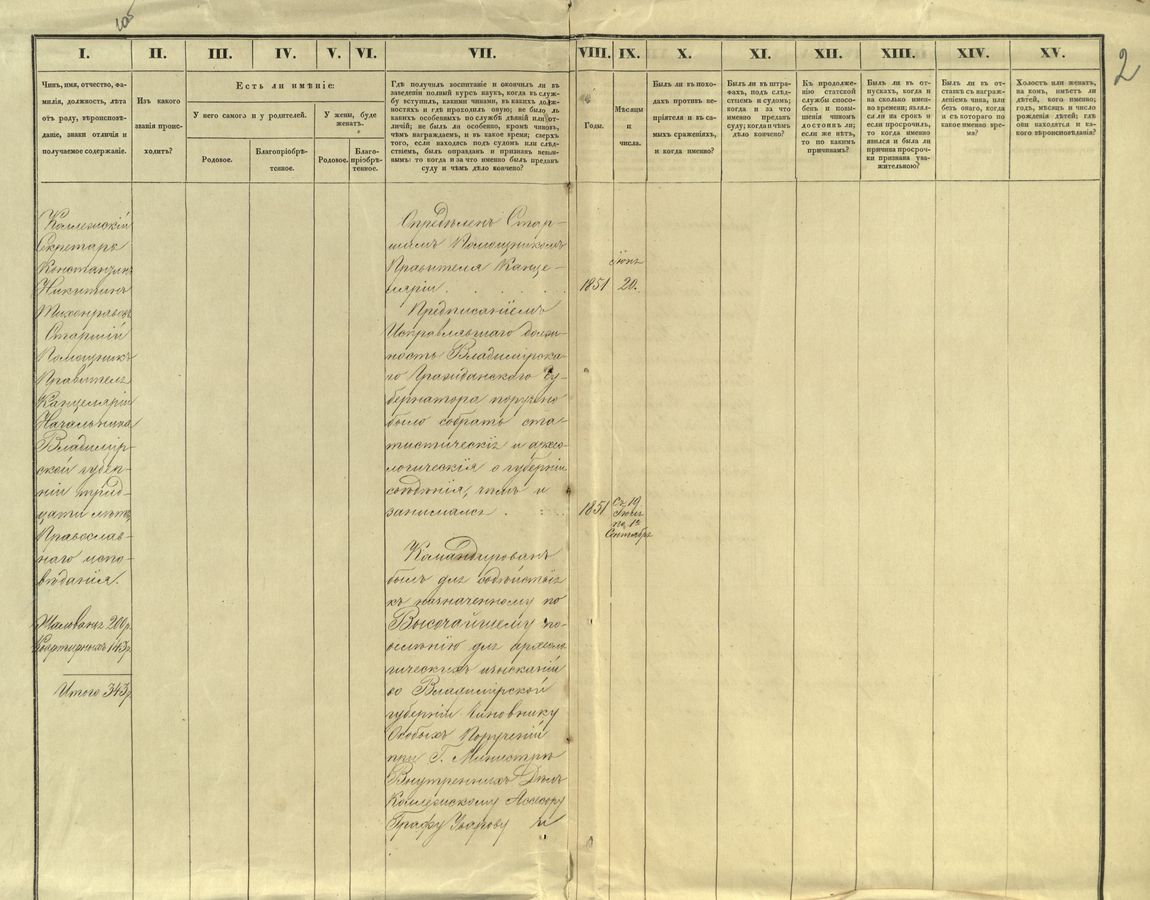 2
I. II. III. IV. V. VI. VII. VIII. IX. X. XI. XII. XIII. XIV. XV.
Чинъ, имя, отчество, фа-
милія, должность, лѣта
отъ роду, вѣроисповѣ-
даніе, знаки отличія и
получаемое содержаніе.
Изъ какого
званія проис-
ходитъ?
Есть ли имѣніе:
У него самого и у родителей.
У жены, буде
женатъ.
Родовое.
Благопріобрѣ-
тенное.
Родовое.
Благо-
пріобрѣ-
тенное.
Гдѣ получилъ воспитаніе и окончилъ ли въ
заведеніи полный курсъ наукъ, когда въ служ-
бу вступилъ, какими чинами, въ какихъ долж-
ностяхъ и гдѣ проходилъ оную; не было ль
какихъ особенныхъ по службѣ дѣяній или от-
личій; не былъ ли особенно, кромѣ чиновъ,
чѣмъ награждаемъ, и въ какое время; сверхъ
того, если находясь подъ судомъ или слѣд-
ствіемъ, былъ оправданъ и признанъ невин-
нымъ: то когда и за что именно былъ преданъ
суду и чѣмъ дѣло кончено?
Годы.
Мѣсяцы
и
числа.
Былъ ли въ похо-
дахъ противъ не-
пріятеля и въ са-
мыхъ сраженіяхъ,
и когда именно?
Былъ ли въ штра-
фахъ, подъ слѣд-
ствіемъ и судомъ;
когда и за что
именно преданъ
суду; когда и чѣмъ
дѣло кончено?
Къ продолже-
нію статской
службы способ-
нъ и повы-
шенія чиномъ
достоинъ ли;
если же нѣтъ,
то по какимъ
причинамъ?
Былъ ли въ от-
пускахъ, когда и
на сколько имен-
но времени; являл-
ся ли на срокъ и
если просрочилъ,
то когда именно
явился и была ли
причина просроч-
ки признана ува-
жительною?
Былъ ли въ от-
ставкѣ съ награж-
деніемъ чина, или
безъ онаго, когда
и съ котораго по
какое именно вре-
мя?
Холостъ или женатъ,
на комъ, имѣетъ ли
дѣтей, кого именно;
годъ, мѣсяцъ и число
рожденія дѣтей; гдѣ
они находятся и ка-
кого вѣроисповѣданія?
Коллежскій
Секретарь
Константинъ
Никитинъ
Тихонравовъ
Старшій
Помощникъ
Правителя
Канцеляріи
Начальника
Владимір-
ской губер-
ніи трид-
цати лѣтъ,
Православ-
наго испо-
вѣданія.
Жалованья 200 р.
Квартирныхъ 143 р.
Итого 343 р.
Опредѣленъ Стар-
шимъ Помощникомъ
Правителя Канце-
ляріи . . . .
1851
Іюня
20.
Предписаніемъ
Исправлявшаго долж-
ность Владимірска-
го Гражданскаго Гу-
бернатора поручено
было собрать ста-
тистическія и архео-
логическія о губерніи
свѣдѣнія, чѣмъ и
занимался . . .
1851
Съ 19
Іюля
по 1е
Сентября
Командированъ
былъ для содѣйствія
къ назначенному по
Высочайшему по-
велѣнію для археоло-
гическихъ изысканій
во Владимірской
губерніи Чиновнику
Особыхъ Порученій
при Г. Министрѣ
Внутреннихъ Дѣлъ
Коллежскому Ассесору
Графу Уварову